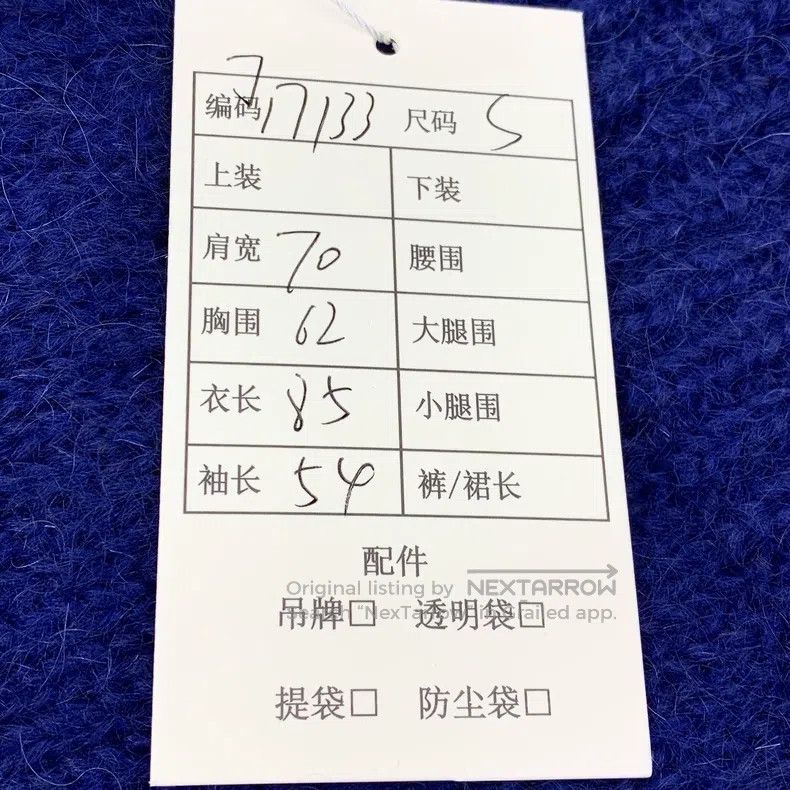 编码 717133 尺码 S
上装 下装
肩宽 70 腰围
胸围 62 大腿围
衣长 85 小腿围
袖长 54 裤/裙长
配件
Original listing by NEXTARROW
Search "NexTarrow" in Grailed app.
吊牌□ 透明袋□
提袋□ 防尘袋□